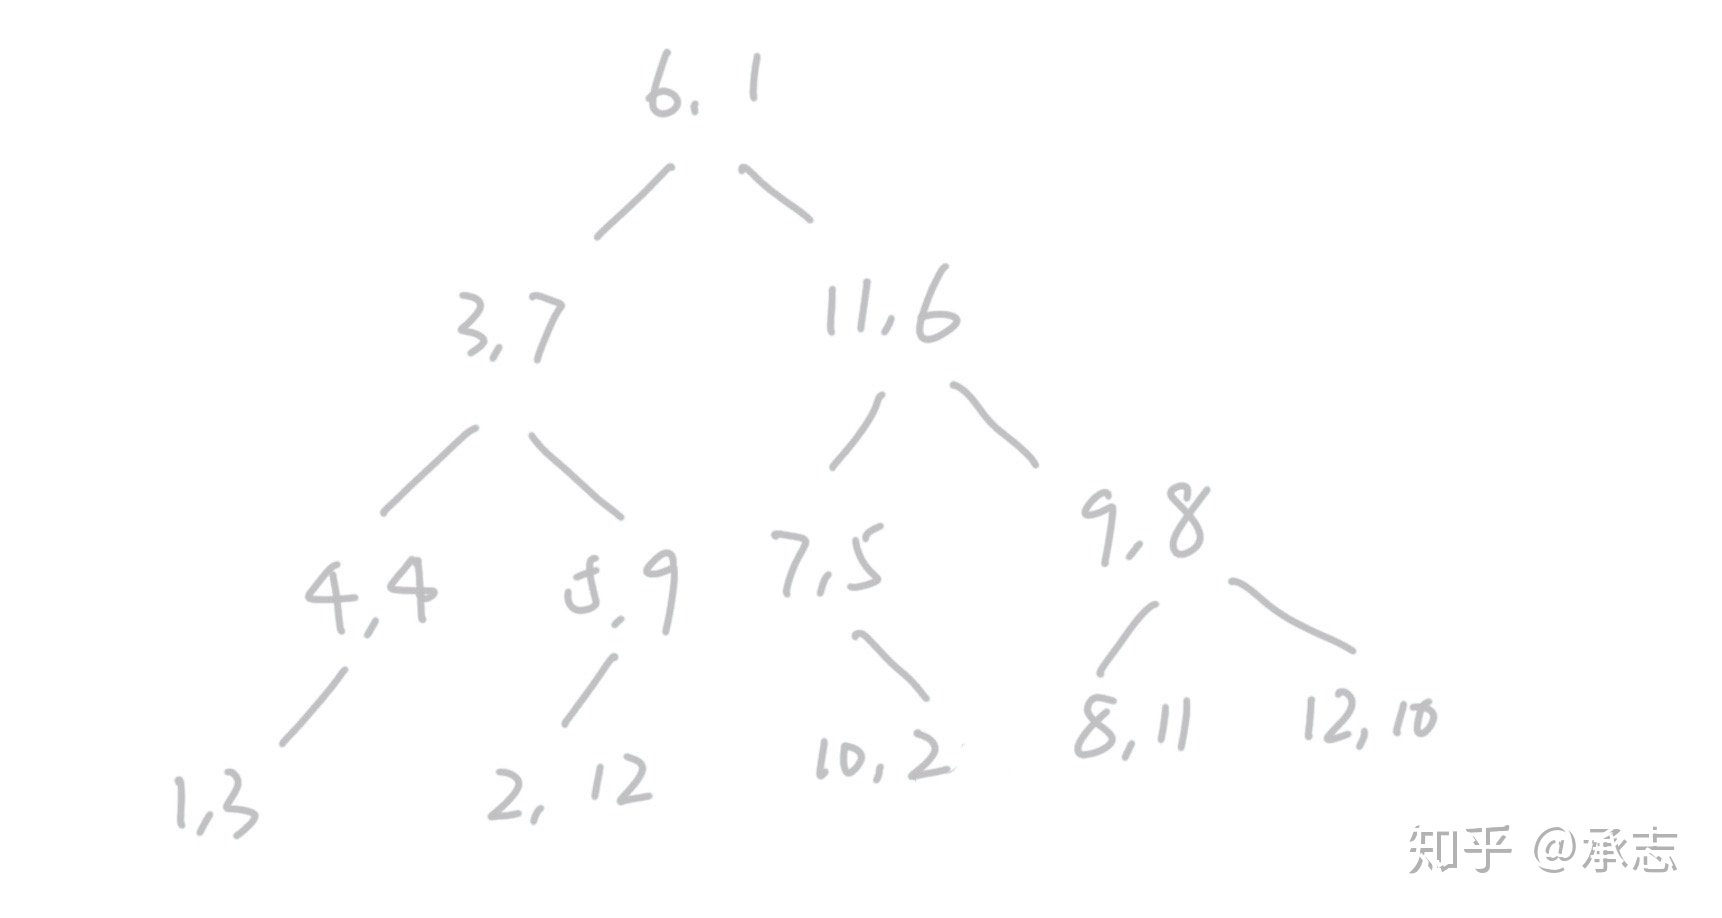 6, 1
3,7
11,6
4,4
5,9
7,5
9,8
1,3
2, 12
10,2
8,11
12,10
知乎 @承志